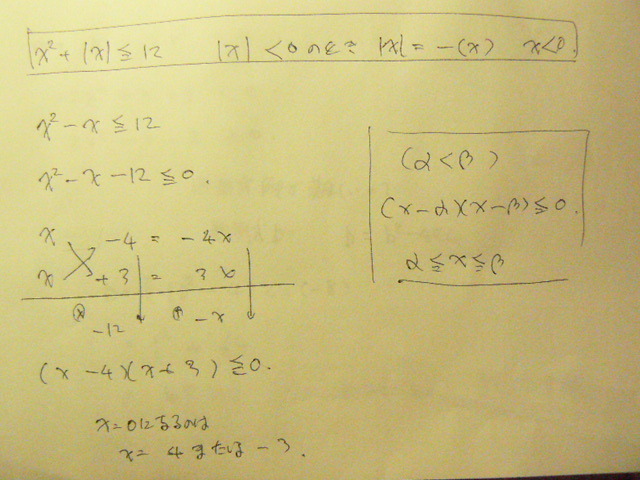 x² + |x| ≦ 12　|x| < 0 のとき |x| = -(x)　x<0.
x² - x ≦ 12
x² - x - 12 ≦ 0.
x -4 = -4x
x +3 = 3x
-12 -x
(x - 4)(x + 3) ≦ 0.
x=0になるのは
x= 4 または -3.
(α < β)
(x-α)(x-β) ≦ 0.
α ≦ x ≦ β